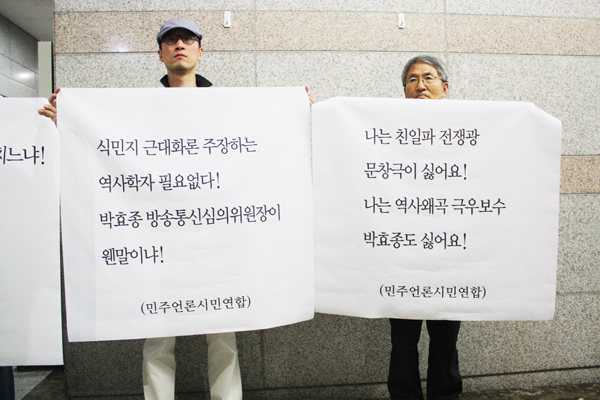 치느냐!
식민지 근대화론 주장하는
역사학자 필요없다!
박효종 방송통신심의위원장이
웬말이냐!
(민주언론시민연합)
나는 친일파 전쟁광
문창극이 싫어요!
나는 역사왜곡 극우보수
박효종도 싫어요!
(민주언론시민연합)